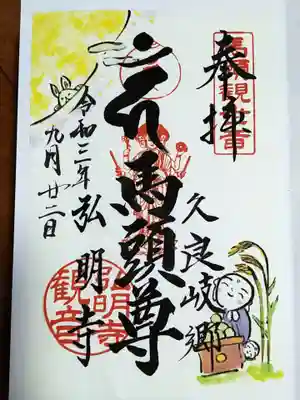 奉拝
馬頭観世音
久良岐郷
馬頭尊
令和三年
九月廿二日
弘明寺
弘明寺
観音